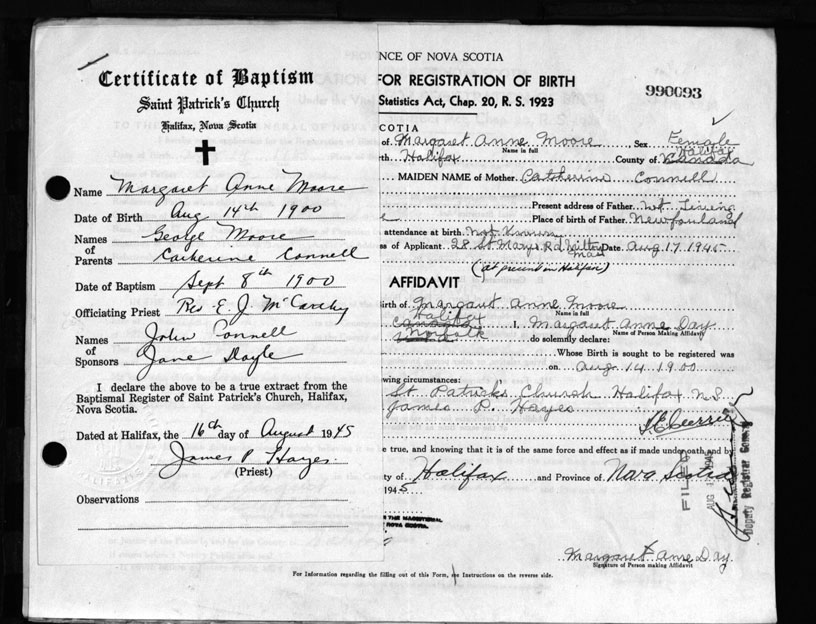 Certificate of Baptism
Saint Patrick's Church
Halifax, Nova Scotia
Name Margaret Anne Moore
Date of Birth Aug 14th 1900
Names of Parents George Moore
Catherine Connell
Date of Baptism Sept 8th 1900
Officiating Priest Rev E. J. McCarthy
Names of Sponsors John Connell
Jane Doyle
I declare the above to be a true extract from the
Baptismal Register of Saint Patrick's Church, Halifax,
Nova Scotia.
Dated at Halifax, the 16th day of August 1945
James P Hayes
(Priest)
Observations
NCE OF NOVA SCOTIA
FOR REGISTRATION OF BIRTH
990093
Statistics Act, Chap. 20, R. S. 1923
SCOTIA
of Margaret Anne Moore Sex Female
Name in full
Halifax
th. Halifax County of Canada
MAIDEN NAME of Mother Catherine Connell
Present address of Father not living
Place of birth of Father Newfounland
attendance at birth Not Known
ss of Applicant 28 St Marys Rd Milton Date Aug 17 1945
Mass
(at present in Halifax)
AFFIDAVIT
irth of Margaret Anne Moore
Name in full
Halifax
Canada I, Margaret Anne Day
Name of Person Making Affidavit
Norfolk do solemnly declare:
Whose Birth is sought to be registered was
on Aug 14 1900
wing circumstances:
St Patricks Church Halifax N.S.
James P. Hayes
e true, and knowing that it is of the same force and effect as if made under oath and by
ty of Halifax and Province of Nova Scotia
1945
FILED
AUG 17 1945
Deputy Registrar General
THE MAGISTERIAL
NOVA SCOTIA.
Margaret Anne Day
Signature of Person making Affidavit
For Information regarding the filling out of this Form, see Instructions on the reverse side.